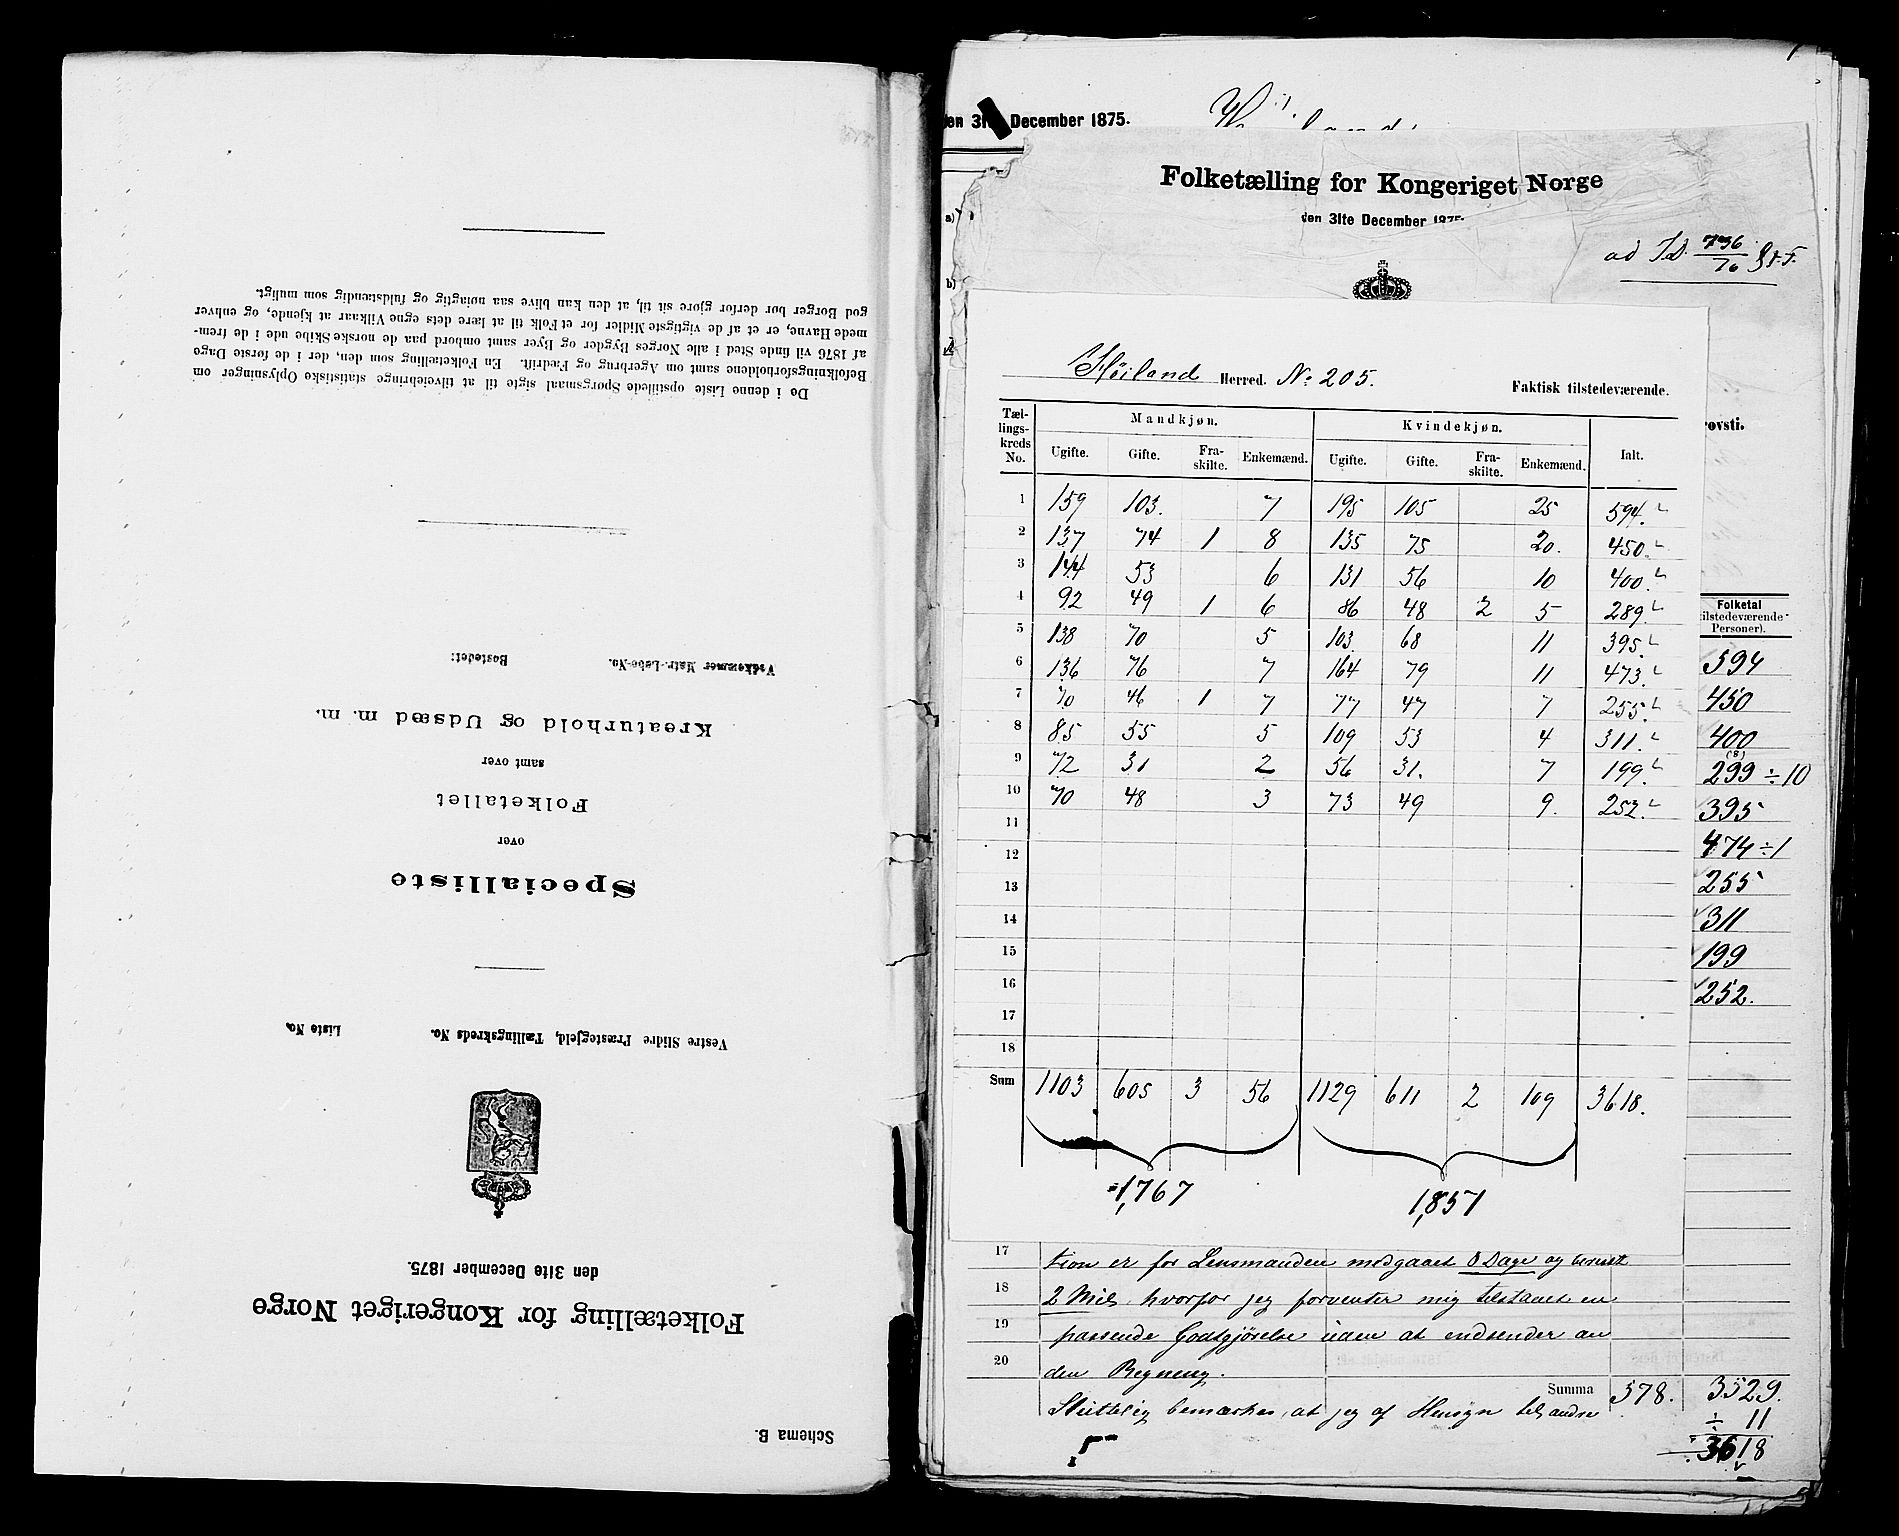 Folketælling for Kongeriget Norge
den 31te December 1875.
Vestre Slidre Præstegjeld, Tællingskreds No. Liste No.
Specialliste
over
Folketallet
samt over
Kreaturhold og Udsæd m. m.
Vedkommer Matr.-Løbe-No. Bostedet:
Da i denne Liste opstillede Spørgsmaal sigte til at tilveiebringe statistiske Oplysninger om
Befolkningsforholdene samt om Agerbrug og Fædrift. En Folketælling som den, der i de første Dage
af 1876 vil finde Sted i alle Norges Bygder og Byer samt ombord paa de norske Skibe ude i de frem-
mede Havne, er et af de vigtigste Midler for et Folk til at lære dets egne Vilkaar at kjende, og enhver
god Borger bør derfor gjøre sit til, at den kan blive saa nøiagtig og fuldstændig som muligt.
Schema B.
December 1875.
Folketælling for Kongeriget Norge
den 31te December 1875.
ad JD. 736/76
Høiland Herred. No 205. Faktisk tilstedeværende.
Tæl-lings-kreds No. Mandkjøn. Kvindekjøn. Ialt.
Ugifte. Gifte. Fra-skilte. Enkemænd. Ugifte. Gifte. Fra-skilte. Enkemænd.
1 159 103. 7 195 105 25 594.
2 137 74 1 8 135 75 20. 450.
3 144 53 6 131 56 10 400.
4 92 49 1 6 86 48 2 5 289.
5 138 70 5 103 68 11 395.
6 136 76 7 164 79 11 473.
7 70 46 1 7 77 47 7 255.
8 85 55 5 109 53 4 311.
9 72 31 2 56 31. 7 199.
10 70 48 3 73 49 9. 252.
11
12
13
14
15
16
17
18
Sum 1103 605 3 56 1129 611 2 109 3618.
1,767 1,851
rovsti.
Folketal
tilstedeværende
Personer).
594
450
400
(8)
299 ÷10
395
474 ÷1
255
311
199
252.
17 tion er for Lensmanden medgaaet 8 Dage og bereist
18 2 Mil, hvorfor jeg forventer mig tilstaaet en
19 passende Godtgjørelse uden at indsender an
20 den Regning.
Summa 578. 3529.
Sluttelig bemærkes, at jeg af Hensyn til andre
÷ 11
3618